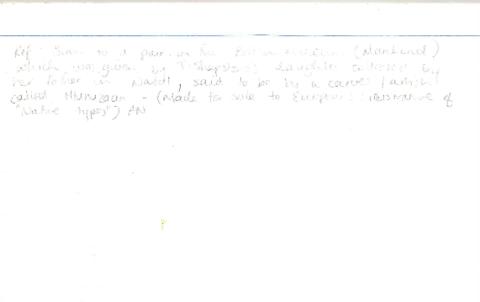 Ref: Similar to a pair in the British Museum (Mankind)
which was given by T. Shepstone's daughter collected by
her father in Natal, said to be by a carver / artist
called - (Made for sale to Europeans: of
"Native types") AN